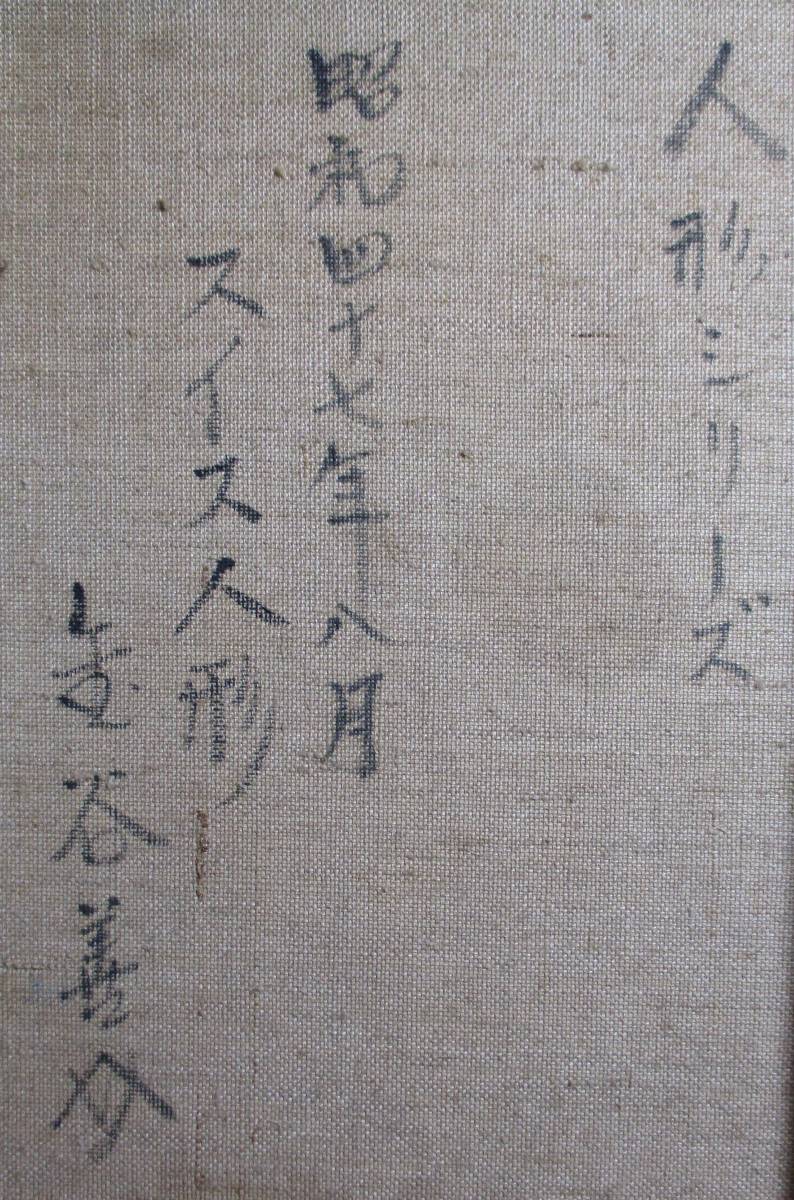 人形シリーズ
昭和四十七年八月
スイス人形
谷